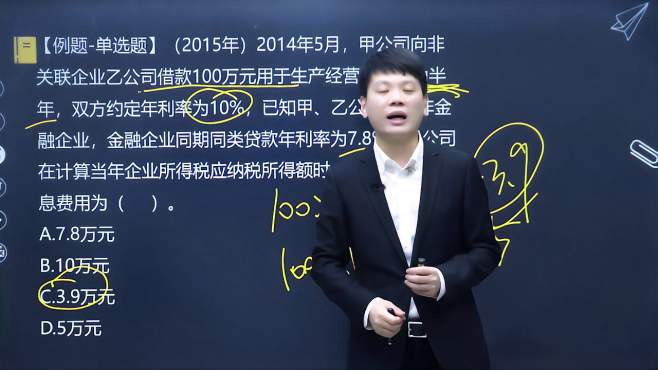 【例题-单选题】（2015年）2014年5月，甲公司向非
关联企业乙公司借款100万元用于生产经营 半
年，双方约定年利率为10%，已知甲、乙公 金
融企业，金融企业同期同类贷款年利率为7.8 公司
在计算当年企业所得税应纳税所得额时
息费用为（ ）。
A.7.8万元
B.10万元
C.3.9万元
D.5万元
3.9
100
100